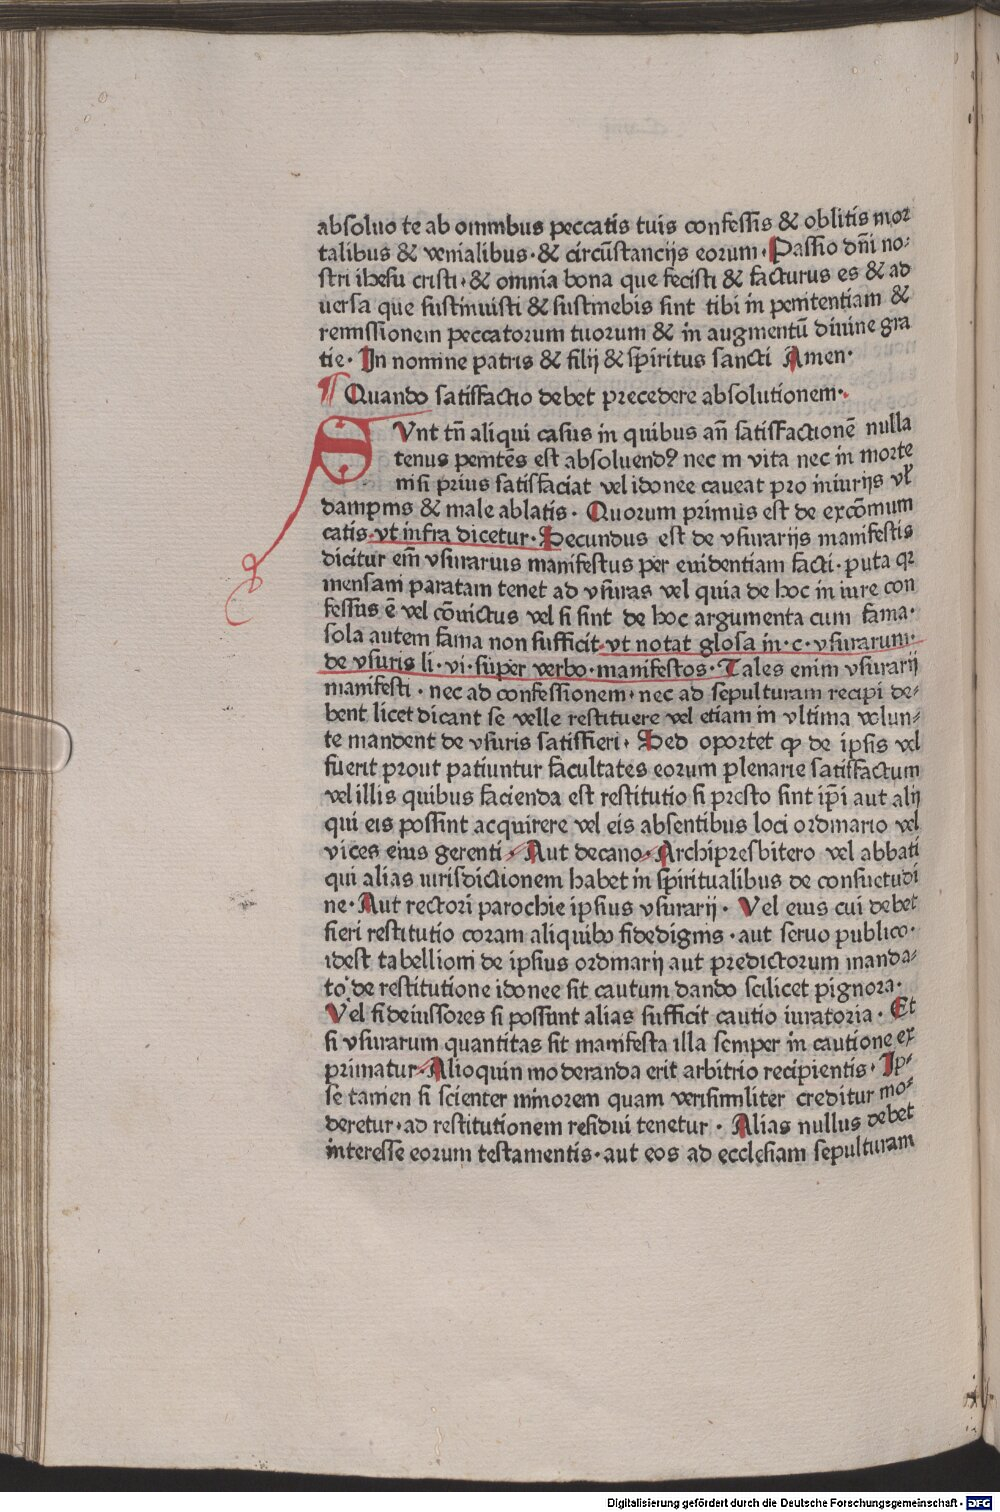 absoluo te ab omnibus peccatis tuis confessis & oblitis mor
talibus & venialibus · & circūstancijs eorum · Passio dn̄i no⸗
stri ihesu cristi · & omnia bona que fecisti & facturus es & ad
uersa que sustinuisti & sustinebis sint tibi in penitentiam &
remissionem peccatorum tuorum & in augmentū diuine gra
tie · In nomine patris & filij & spiritus sancti Amen ·
¶ Quando satisfactio debet precedere absolutionem ·
SVnt tn̄ aliqui casus in quibus an̄ satisfactionē nulla
tenus penitēs est absoluendꝰ nec in vita nec in morte
nisi prius satisfaciat vel idonee caueat pro iniurijs vl̄
dampnis & male ablatis · Quorum primus est de excōmum
catis · vt infra dicetur · Secundus est de vsurarijs manifestis
dicitur em̄ vsurarius manifestus per euidentiam facti · puta qꝛ
mensam paratam tenet ad vsuras vel quia de hoc in iure con
fessus ē vel cōuictus vel si sint de hoc argumenta cum fama ·
sola autem fama non sufficit · vt notat glosa in · c · vsurarum ·
de vsuris li · vi · super verbo · manifestos · Tales enim vsurarij
manifesti · nec ad confessionem · nec ad sepulturam recipi de⸗
bent licet dicant se velle restituere vel etiam in vltima volun⸗
te mandent de vsuris satisfieri · Sed oportet ꝙ de ipsis vel
fuerit prout patiuntur facultates eorum plenarie satisfactum
vel illis quibus facienda est restitutio si presto sint ip̄i aut alij
qui eis possint acquirere vel eis absentibus loci ordinario vel
vices eius gerenti · Aut decano · Archipresbitero vel abbati
qui alias iurisdictionem habet in spiritualibus de consuetudi
ne · Aut rectori parochie ipsius vsurarij · Vel eius cui debet
fieri restitutio coram aliquibo fidedignis · aut seruo publico ·
idest tabellioni de ipsius ordinarij aut predictorum manda⸗
to de restitutione idonee sit cautum dando scilicet pignora ·
Vel fideiussores si possunt alias sufficit cautio iuratoria · Et
si vsurarum quantitas sit manifesta illa semper in cautione ex
primatur · Alioquin moderanda erit arbitrio recipientis · Ip⸗
se tamen si scienter minorem quam verisimiliter creditur mo⸗
deretur · ad restitutionem residui tenetur · Alias nullus debet
interesse eorum testamentis · aut eos ad ecclesiam sepulturam
Digitalisierung gefördert durch die Deutsche Forschungsgemeinschaft - DFG